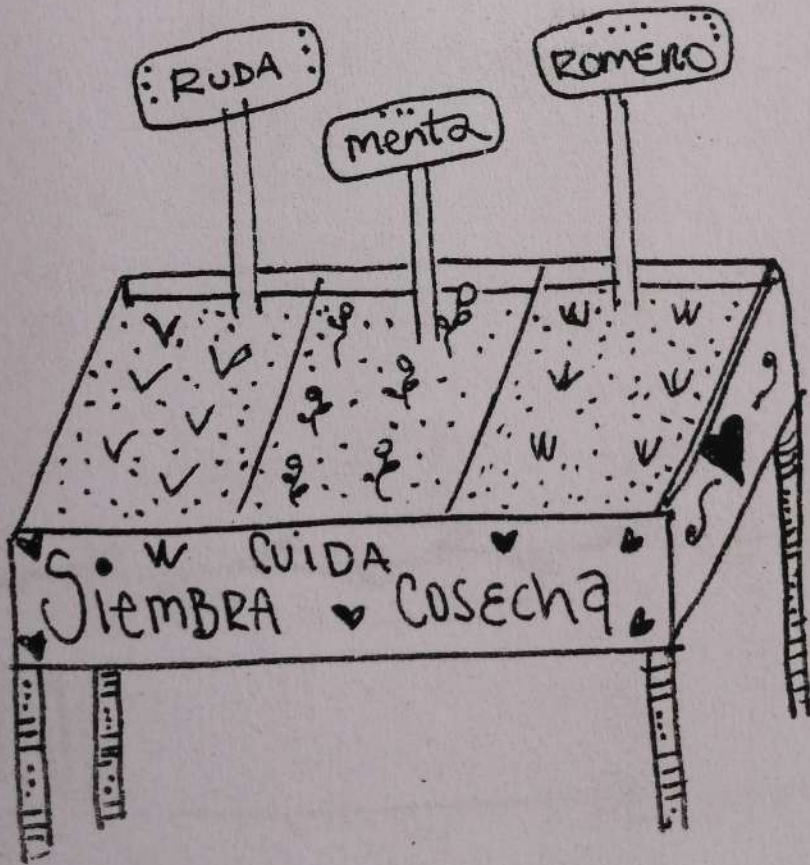 RUDA
menta
ROMERO
CUIDA
SiemBRA COSECha